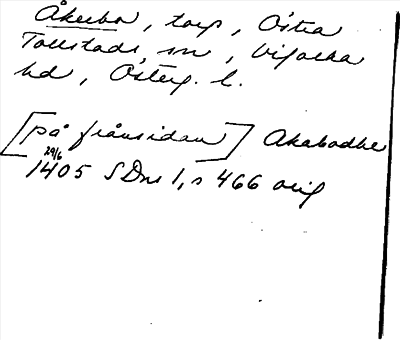 Åkerbo, torp, Östra
Tollstads sn, Vifolka
hd, Österg. l.
[på frånsidan] Akabodhe
29/6
1405 SDns 1, s 466 orig